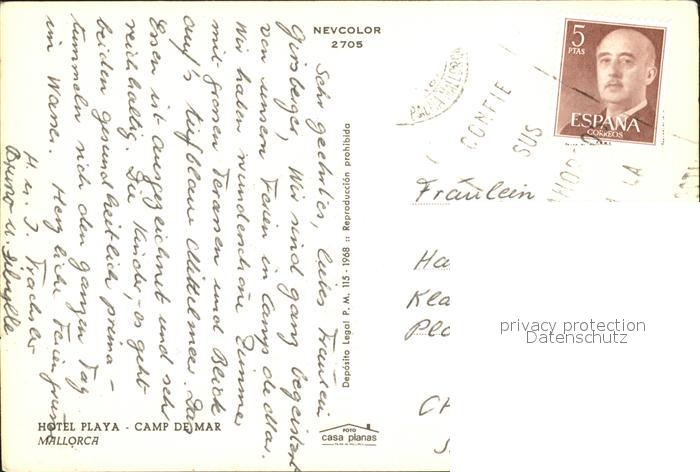 NEVCOLOR
2705
Sehr geehrtes, liebes Fräulein
Wir sind ganz begeistert
von unsern Ferien in Camp de Mar.
Wir haben wunderschöne Zimmer
mit grossen Terassen und Blick
aufs tiefblaue Mittelmeer. Das
Essen ist ausgezeichnet und sehr
reichhaltig. Die Kinder, es geht
beiden gesundheitlich prima -
tummeln sich den ganzen Tag
im Wasser. Herzliche Feriengrüsse
H. u. J. Trachsler
Bruno u. Sibylle
Depósito Legal P. M. 115 - 1968 :: Reproducción prohibida
HOTEL PLAYA - CAMP DE MAR
MALLORCA
FOTO
casa planas
CONFIE
SUS
LA
5
PTAS
ESPAÑA
CORREOS
Fräulein
Ha
Kla
Pla
CH
privacy protection
Datenschutz